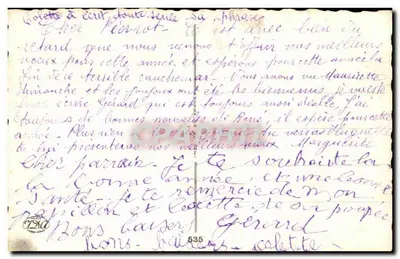 Colette a écrit toute seule sa phrase
Cher Pierrot - C'est avec bien du
retard que nous venons t'offrir nos meilleurs
vœux pour cette année et espérons pour cette année la
fin de ce terrible cauchemar. Nous avons vu Mauricette
dimanche et les joujoux ont été les bienvenus, je
faire écrire Gérard qui est toujours aussi diable. J'ai
toujours de bonnes nouvelles de René, il espère pour cette
année. Plus rien
de lui présenteras nos meilleurs vœux Marguerite
Cher parrain. Je te souhaite la
la bonne année et meilleure
santé. Je te remercie de mon
papillon et Colette de sa poupée
Bons baisers Gérard
bons baisers colette
535